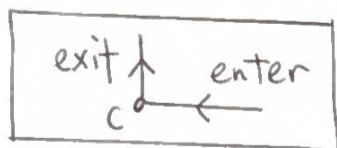 exit
enter
C